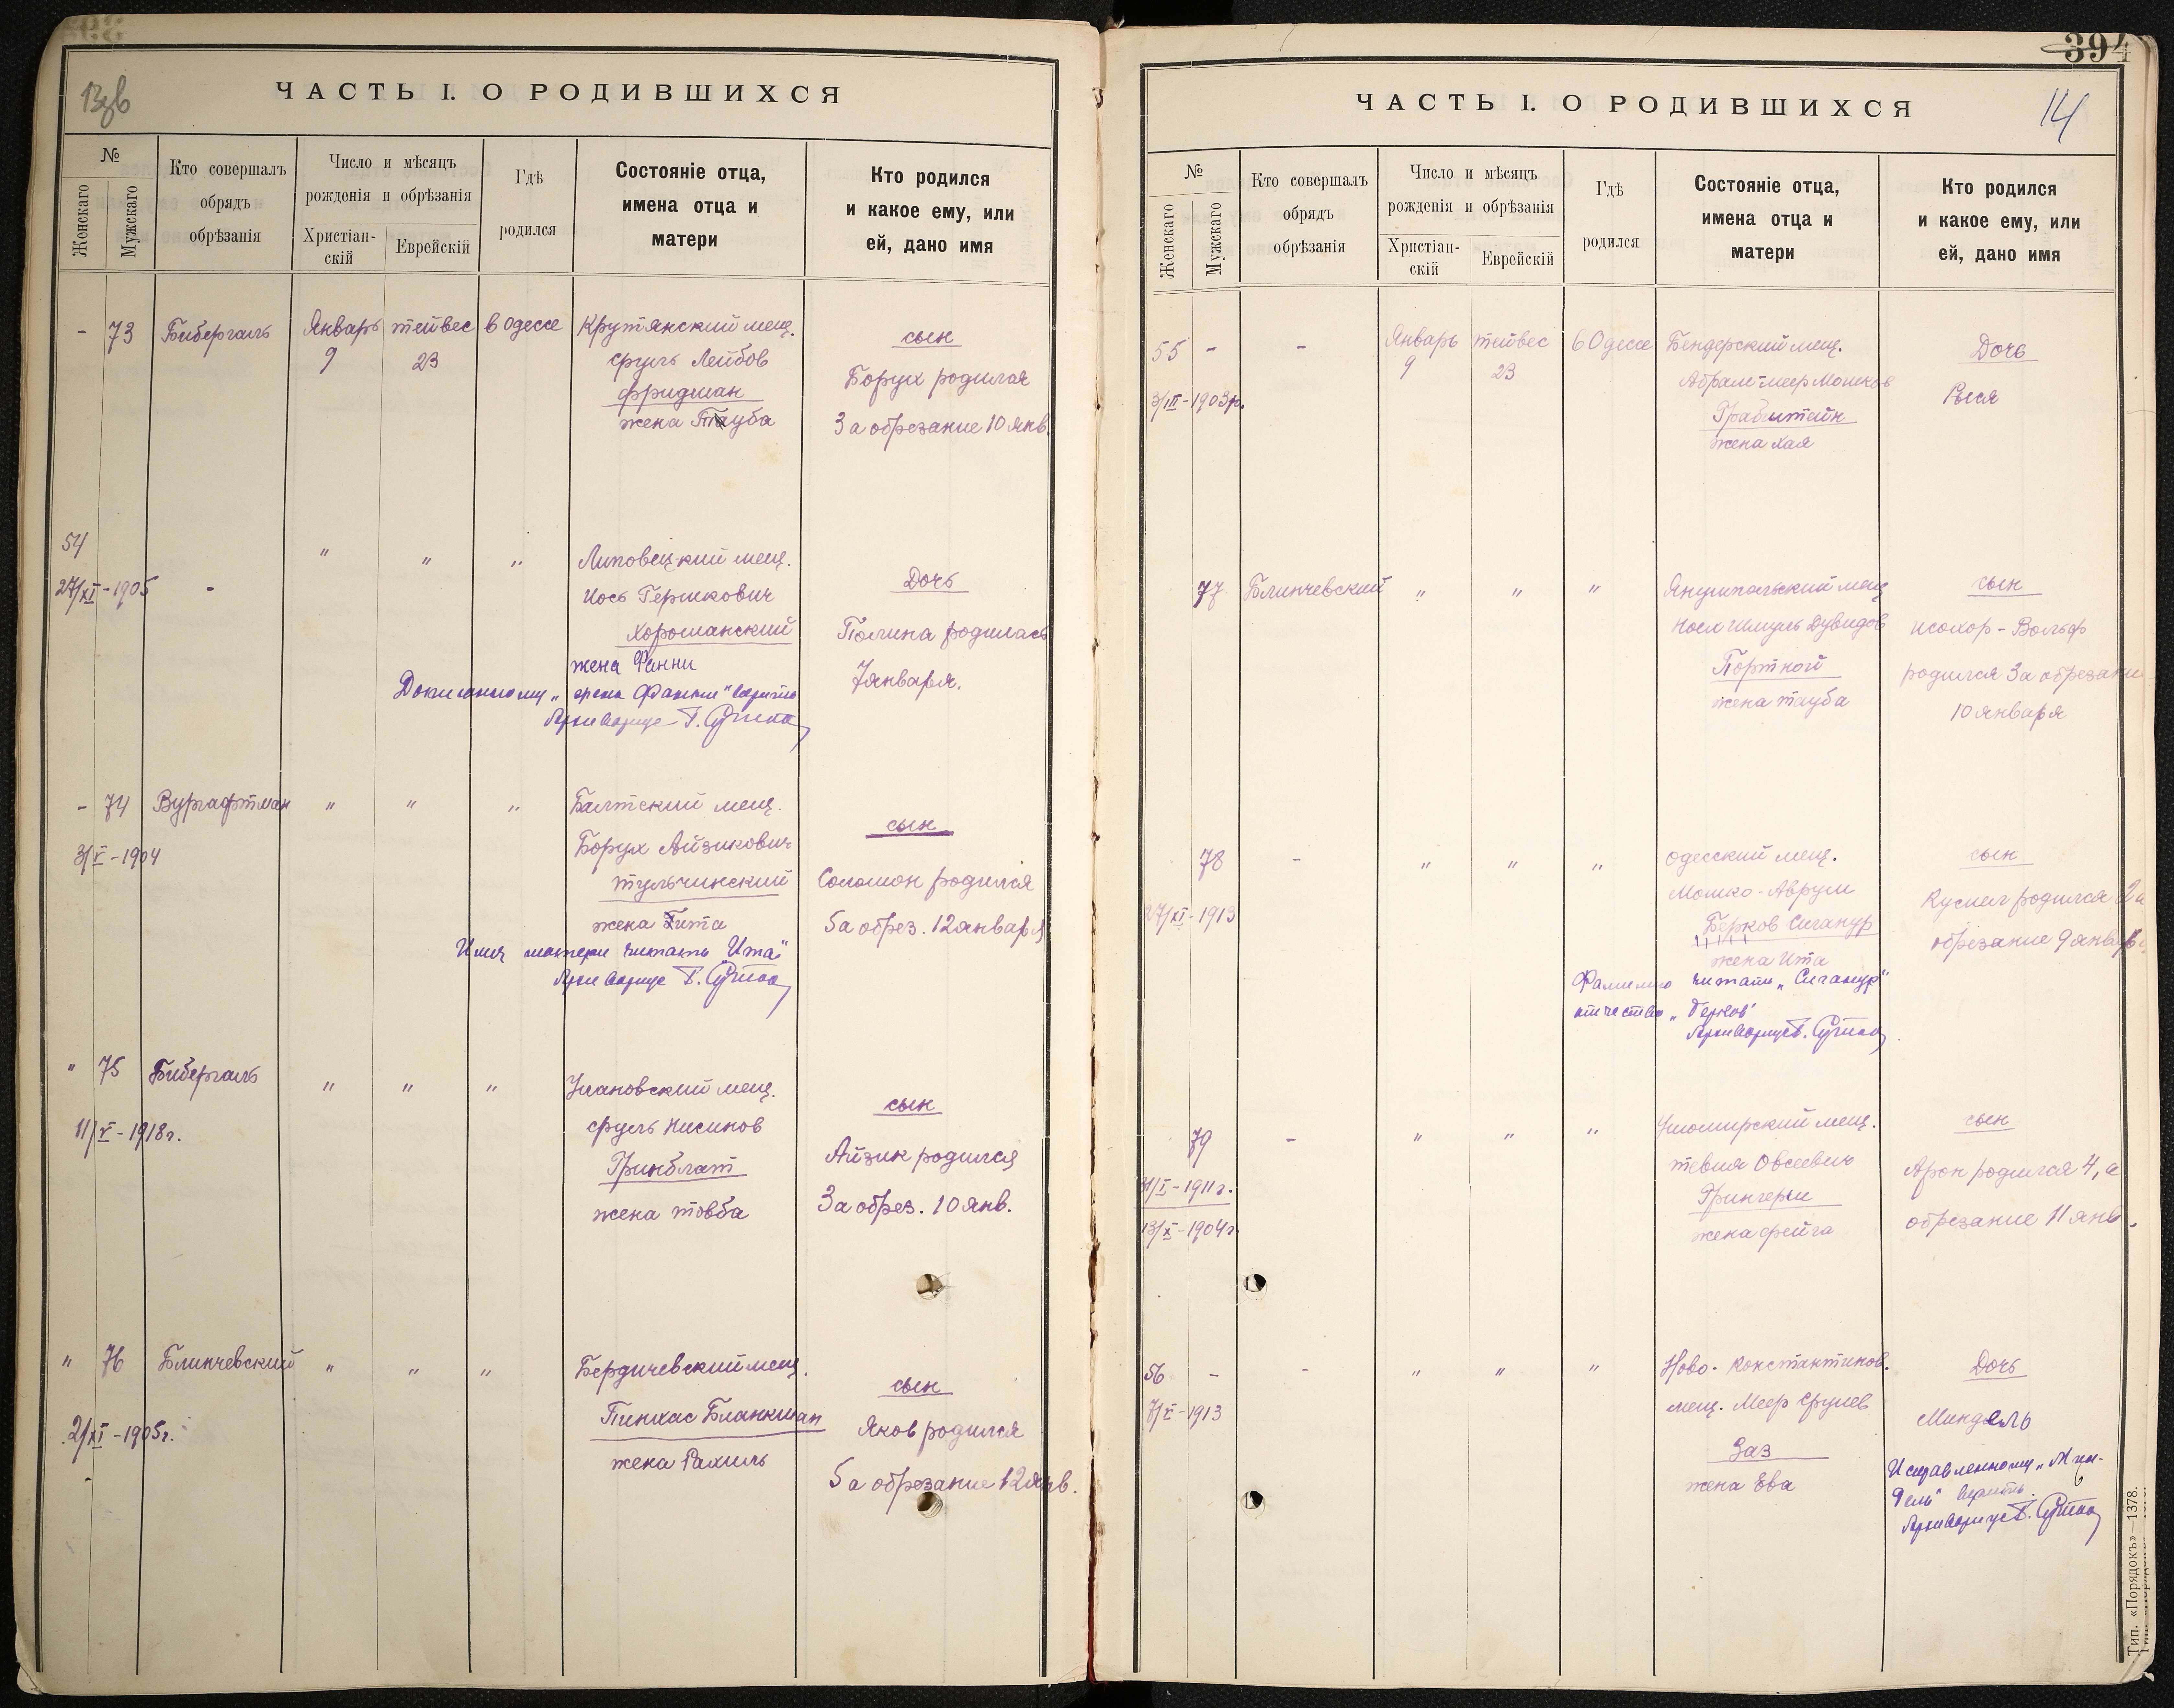 13об
ЧАСТЬ I. О РОДИВШИХСЯ
№
Женскаго
Мужскаго
Кто совершалъ
обрядъ
обрѣзанія
Число и мѣсяцъ
рожденія и обрѣзанія
Христіан-
скій
Еврейскій
Гдѣ
родился
Состояніе отца,
имена отца и
матери
Кто родился
и какое ему, или
ей, дано имя
- 73 Бибергаль Январь 9 тейвес 23 в Одессе
Крутянский мещ.
Сруль Лейбов
Фридман
жена Тауба
сын
Борух родился
3 а обрезание 10 янв.
54
27/XI-1905
-
" " "
Липовецкий мещ.
Иось Гершкович
Хорошанский
жена Фанни
Дописанному „жена Фанни" верить
Архивариус Г.
Дочь
Полина родилась
7 января.
- 74 Вургафтман " " "
3/V-1904
Балтский мещ.
Борух Айзикович
Тульчинский
жена Ита
Имя матери читать „Ита"
Архивариус Г.
сын
Соломон родился
5 а обрез. 12 января
" 75 Бибергаль " " "
11/V-1918г.
Улановский мещ.
Сруль Нисинов
Гринблат
жена Товба
сын
Айзик родился
3 а обрез. 10 янв.
" 76 Блинчевский " " "
2/XI-1905г.
Бердичевский мещ.
Пинхас Бланкман
жена Рахиль
сын
Яков родился
5 а обрезание 12 янв.
394
14
ЧАСТЬ I. О РОДИВШИХСЯ
№
Женскаго
Мужскаго
Кто совершалъ
обрядъ
обрѣзанія
Число и мѣсяцъ
рожденія и обрѣзанія
Христіан-
скій
Еврейскій
Гдѣ
родился
Состояніе отца,
имена отца и
матери
Кто родился
и какое ему, или
ей, дано имя
55 - - Январь 9 тейвес 23 в Одессе
3/III-1903г.
Бендерский мещ.
Абрам-Меер Мошков
Грабштейн
жена Хая
Дочь
Рыся
77 Блинчевский " " "
Янушпольский мещ.
Иосл Шмуль Дувидов
Портной
жена Тауба
сын
Исохор-Вольф
родился 3 а обрезание
10 января
78 - " " "
27/XI-1913
Одесский мещ.
Мошко-Аврум
Берков Сиганур
жена Ита
Фамилию читать „Сиганур"
отчество „Берков"
Архивариус Г.
сын
Кусиел родился 2 а
обрезание 9 января
79 - " " "
31/I-1911г.
13/X-1904г.
Ушомирский мещ.
Тевия Овсеевич
жена Фейга
сын
Арон родился 4, а
обрезание 11 янв.
56 - - " " "
7/V-1913
Ново-Константинов.
мещ. Меер Срулев
Заз
жена Ева
Дочь
Миндель
Исправленному „Мин-
дель" верить.
Архивариус Г.
Тип. «Порядокъ»—1378.